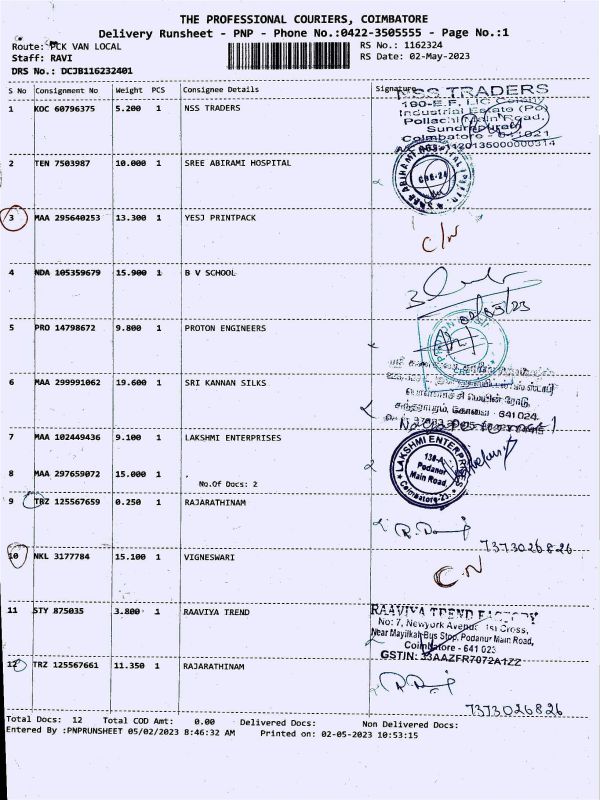 THE PROFESSIONAL COURIERS, COIMBATORE
Delivery Runsheet - PNP - Phone No.:0422-3505555 - Page No.:1
Route: PCK VAN LOCAL
RS No.: 1162324
Staff: RAVI
RS Date: 02-May-2023
DRS No.: DCJB116232401
S No Consignment No Weight PCS Consignee Details Signature
NSS TRADERS
1 KOC 60796375 5.200 1 NSS TRADERS
190-E.F, LIC Colony
Industrial Estate (Po)
Pollachi Main Road,
Sundrapuram
Coimbatore - 641021
2 TEN 7503987 10.000 1 SREE ABIRAMI HOSPITAL
CBE-24
3 MAA 295640253 13.300 1 YESJ PRINTPACK
C/N
4 NDA 105359679 15.900 1 B V SCHOOL
02/05/23
5 PRO 14798672 9.800 1 PROTON ENGINEERS
6 MAA 299991062 19.600 1 SRI KANNAN SILKS
பொள்ளாச்சி மெயின் ரோடு,
சுந்தராபுரம், கோவை - 641 024.
7 MAA 102449436 9.100 1 LAKSHMI ENTERPRISES
LAKSHMI ENTERPRISES
138-A
Podanur
Main Road,
Coimbatore-23.
8 MAA 297659072 15.000 1 .
No.Of Docs: 2
9 TRZ 125567659 0.250 1 RAJARATHINAM
7373026826
10 NKL 3177784 15.100 1 VIGNESWARI
C.N
11 STY 875035 3.800 1 RAAVIYA TREND
RAAVIYA TREND FACTORY
No: 7, Newyork Avenue, 1st Cross,
Near Mayilkal Bus Stop, Podanur Main Road,
Coimbatore - 641 023
GSTIN: 33AAZFR7072A1ZZ
12 TRZ 125567661 11.350 1 RAJARATHINAM
7373026826
Total Docs: 12 Total COD Amt: 0.00 Delivered Docs: Non Delivered Docs:
Entered By :PNPRUNSHEET 05/02/2023 8:46:32 AM Printed on: 02-05-2023 10:53:15